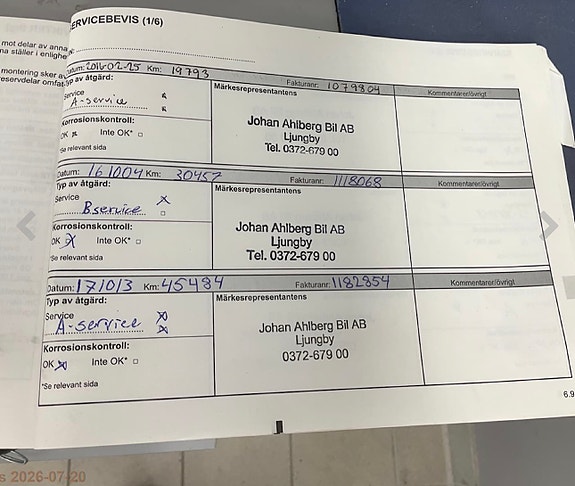 SERVICEBEVIS (1/6)
mot delar av anna
na ställer i enlighe
montering sker av
reservdelar omfat
Datum: 2016-02-25 Km: 19793 Fakturanr: 1079804 Kommentarer/övrigt
Typ av åtgärd: Märkesrepresentantens
Service
A-service
Johan Ahlberg Bil AB
Ljungby
Tel. 0372-679 00
Korrosionskontroll:
OK Inte OK*
*Se relevant sida
Datum: 161004 Km: 30457 Fakturanr: 1118068 Kommentarer/övrigt
Typ av åtgärd: Märkesrepresentantens
Service
B service
Johan Ahlberg Bil AB
Ljungby
Tel. 0372-679 00
Korrosionskontroll:
OK Inte OK*
*Se relevant sida
Datum: 171013 Km: 45484 Fakturanr: 1182854 Kommentarer/övrigt
Typ av åtgärd: Märkesrepresentantens
Service
A-service
Johan Ahlberg Bil AB
Ljungby
0372-679 00
Korrosionskontroll:
OK Inte OK*
*Se relevant sida
6.9
s 2026-07-20